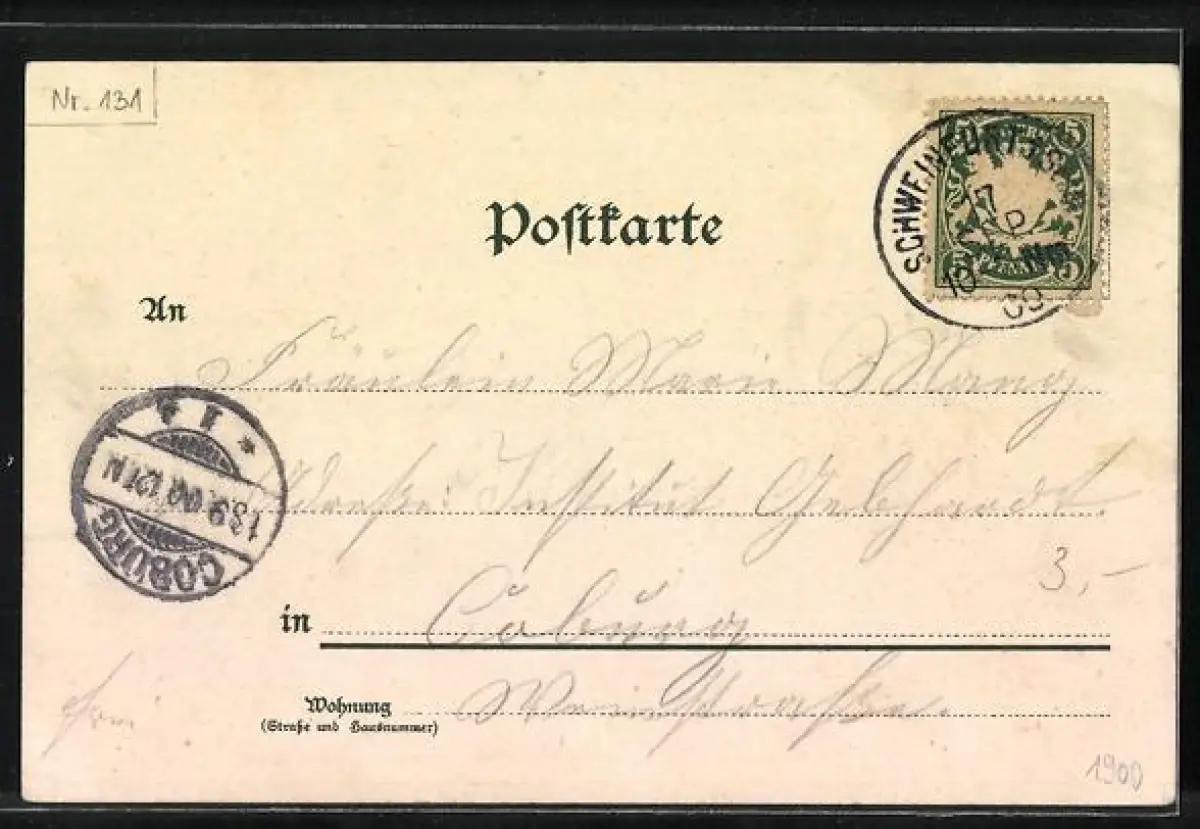 Nr. 131
Postkarte
SCHWEINFURT
17
An
Fräulein Marie Mang
Adresse: Institut Gebhardt.
COBURG
13 9 00 121N
3,-
in Coburg
Wohnung
(Straße und Hausnummer)
1900